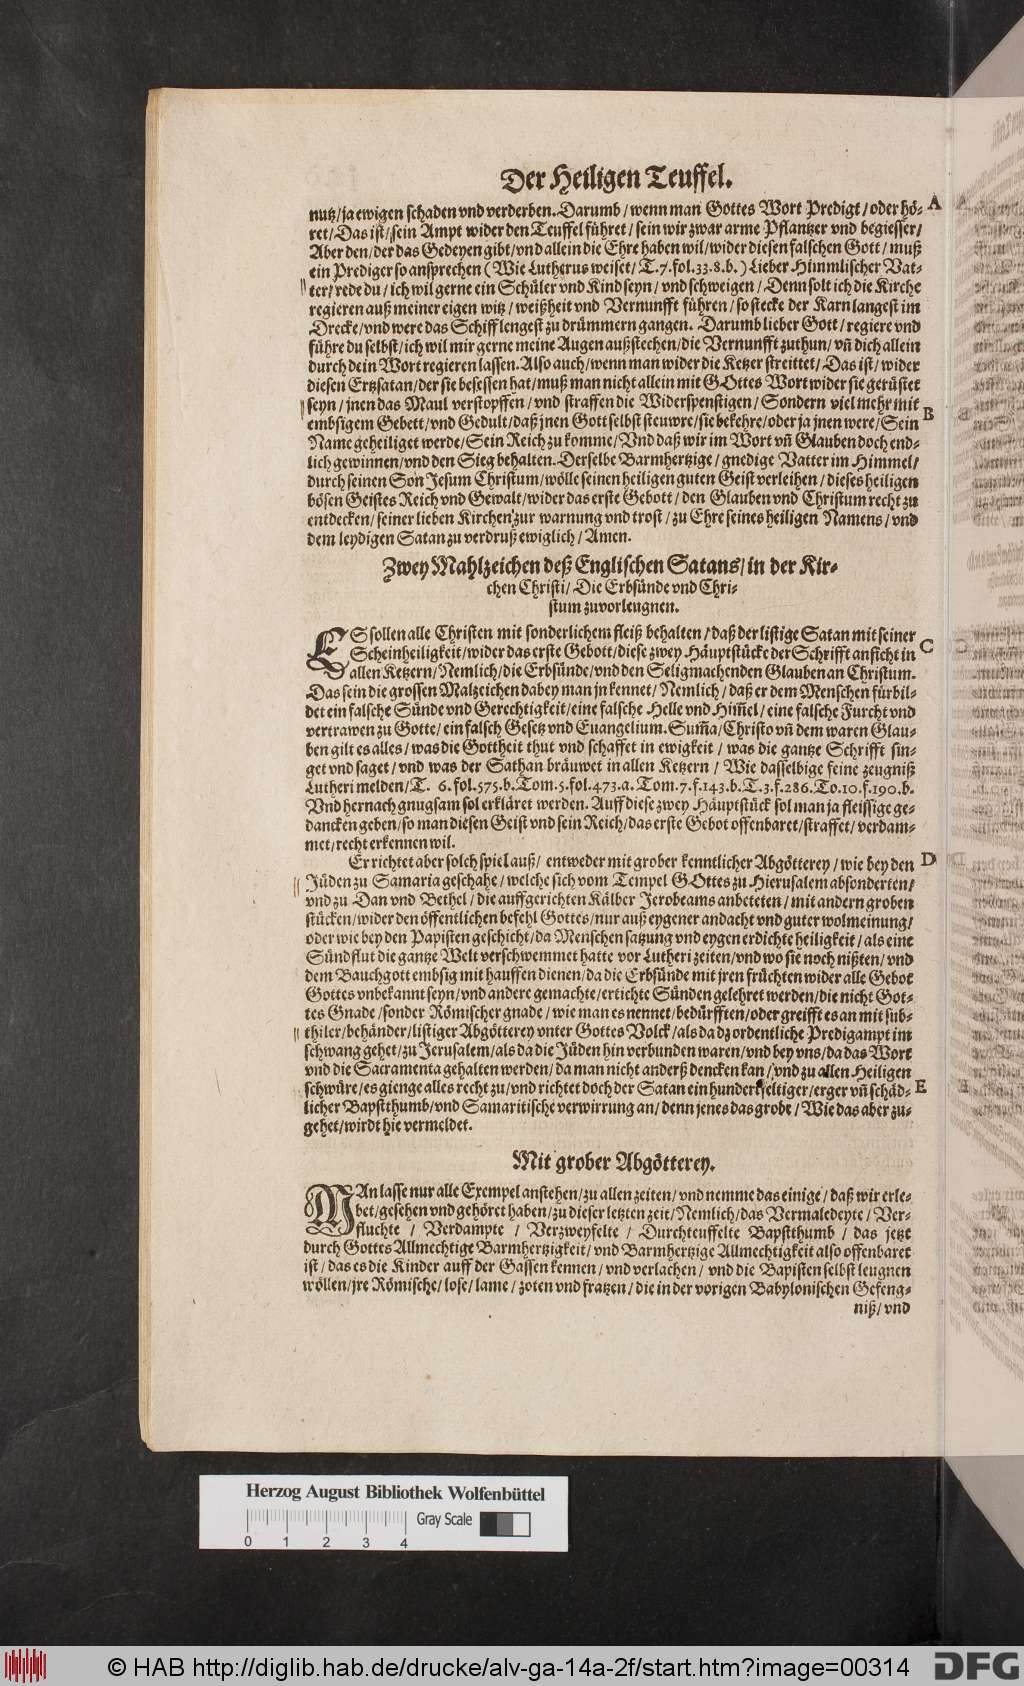 Der Heiligen Teuffel.
nutz/ja ewigen schaden vnd verderben. Darumb/wenn man Gottes Wort Predigt/oder hö-
A
ret/Das ist/sein Ampt wider den Teuffel führet/sein wir zwar arme Pflantzer vnd begiesser/
Aber den/der das Gedeyen gibt/vnd allein die Ehre haben wil/wider diesen falschen Gott/muß
ein Prediger so ansprechen (Wie Lutherus weiset/T.7.fol.33.8.b.) Lieber Himmlischer Vat-
ter/rede du/ich wil gerne ein Schüler vnd Kind seyn/vnd schweigen/Denn solt ich die Kirche
regieren auß meiner eigen witz/weißheit vnd Vernunfft führen/so stecke der Karn langest im
Drecke/vnd were das Schiff lengest zu drümmern gangen. Darumb lieber Gott/regiere vnd
führe du selbst/ich wil mir gerne meine Augen außstechen/die Vernunfft zuthun/vñ dich allein
durch dein Wort regieren lassen. Also auch/wenn man wider die Ketzer streittet/Das ist/wider
diesen Ertzsatan/der sie besessen hat/muß man nicht allein mit GOttes Wort wider sie gerüstet
seyn/jnen das Maul verstopffen/vnd straffen die Widerspenstigen/Sondern viel mehr mit
B
embsigem Gebett/vnd Gedult/daß jnen Gott selbst steuwre/sie bekehre/oder ja jnen were/Sein
Name geheiliget werde/Sein Reich zu komme/Vnd daß wir im Wort vñ Glauben doch end-
lich gewinnen/vnd den Sieg behalten. Derselbe Barmhertzige/gnedige Vatter im Himmel/
durch seinen Son Jesum Christum/wölle seinen heiligen guten Geist verleihen/dieses heiligen
bösen Geistes Reich vnd Gewalt/wider das erste Gebott/den Glauben vnd Christum recht zu
entdecken/seiner lieben Kirchen zur warnung vnd trost/zu Ehre seines heiligen Namens/vnd
dem leydigen Satan zu verdruß ewiglich/Amen.
Zwey Mahlzeichen deß Englischen Satans/in der Kir-
chen Christi/Die Erbsünde vnd Chri-
stum zuvorleugnen.
ES sollen alle Christen mit sonderlichem fleiß behalten/daß der listige Satan mit seiner
Scheinheiligkeit/wider das erste Gebott/diese zwey Häuptstücke der Schrifft anficht in
C
allen Ketzern/Nemlich/die Erbsünde/vnd den Seligmachenden Glauben an Christum.
Das sein die grossen Malzeichen dabey man jn kennet/Nemlich/daß er dem Menschen fürbil-
det ein falsche Sünde vnd Gerechtigkeit/eine falsche Helle vnd Him̃el/eine falsche Furcht vnd
vertrawen zu Gotte/ein falsch Gesetz vnd Euangelium. Sum̃a/Christo vñ dem waren Glau-
ben gilt es alles/was die Gottheit thut vnd schaffet in ewigkeit/was die gantze Schrifft sin-
get vnd saget/vnd was der Sathan bräuwet in allen Ketzern/Wie dasselbige feine zeugniß
Lutheri melden/T. 6.fol.575.b.Tom.5.fol.473.a.Tom.7.f.143.b.T.3.f.286.To.10.f.190.b.
Vnd hernach gnugsam sol erkläret werden. Auff diese zwey Häuptstück sol man ja fleissige ge-
dancken geben/so man diesen Geist vnd sein Reich/das erste Gebot offenbaret/straffet/verdam-
met/recht erkennen wil.
Er richtet aber solch spiel auß/entweder mit grober kenntlicher Abgötterey/wie bey den
D
Jüden zu Samaria geschahe/welche sich vom Tempel GOttes zu Hierusalem absonderten/
vnd zu Dan vnd Bethel/die auffgerichten Kälber Jerobeams anbeteten/mit andern groben
stücken/wider den öffentlichen befehl Gottes/nur auß eygener andacht vnd guter wolmeinung/
oder wie bey den Papisten geschicht/da Menschen satzung vnd eygen erdichte heiligkeit/als eine
Sündflut die gantze Welt verschwemmet hatte vor Lutheri zeiten/vnd wo sie noch nißten/vnd
dem Bauchgott embsig mit hauffen dienen/da die Erbsünde mit jren früchten wider alle Gebot
Gottes vnbekannt seyn/vnd andere gemachte/ertichte Sünden gelehret werden/die nicht Got-
tes Gnade/sonder Römischer gnade/wie man es nennet/bedürfften/oder greifft es an mit sub-
thiler/behänder/listiger Abgötterey vnter Gottes Volck/als da dz ordentliche Predigampt im
schwang gehet/zu Jerusalem/als da die Jüden hin verbunden waren/vnd bey vns/da das Wort
vnd die Sacramenta gehalten werden/da man nicht anderß dencken kan/vnd zu allen Heiligen
schwüre/es gienge alles recht zu/vnd richtet doch der Satan ein hundertfeltiger/erger vñ schäd-
E
licher Bapstthumb/vnd Samaritische verwirrung an/denn jenes das grobe/Wie das aber zu-
gehet/wirdt hie vermeldet.
Mit grober Abgötterey.
MAn lasse nur alle Exempel anstehen/zu allen zeiten/vnd nemme das einige/daß wir erle-
bet/gesehen vnd gehöret haben/zu dieser letzten zeit/Nemlich/das Vermaledeyte/Ver-
fluchte/Verdampte/Verzweyfelte/Durchteuffelte Bapstthumb/das jetzt
durch Gottes Allmechtige Barmhertzigkeit/vnd Barmhertzige Allmechtigkeit also offenbaret
ist/das es die Kinder auff der Gassen kennen/vnd verlachen/vnd die Bapisten selbst leugnen
wöllen/jre Römische/lose/lame/zoten vnd fratzen/die in der vorigen Babylonischen Gefeng-
niß/vnd
Herzog August Bibliothek Wolfenbüttel
Gray Scale
0 1 2 3 4
© HAB http://diglib.hab.de/drucke/alv-ga-14a-2f/start.htm?image=00314
DFG